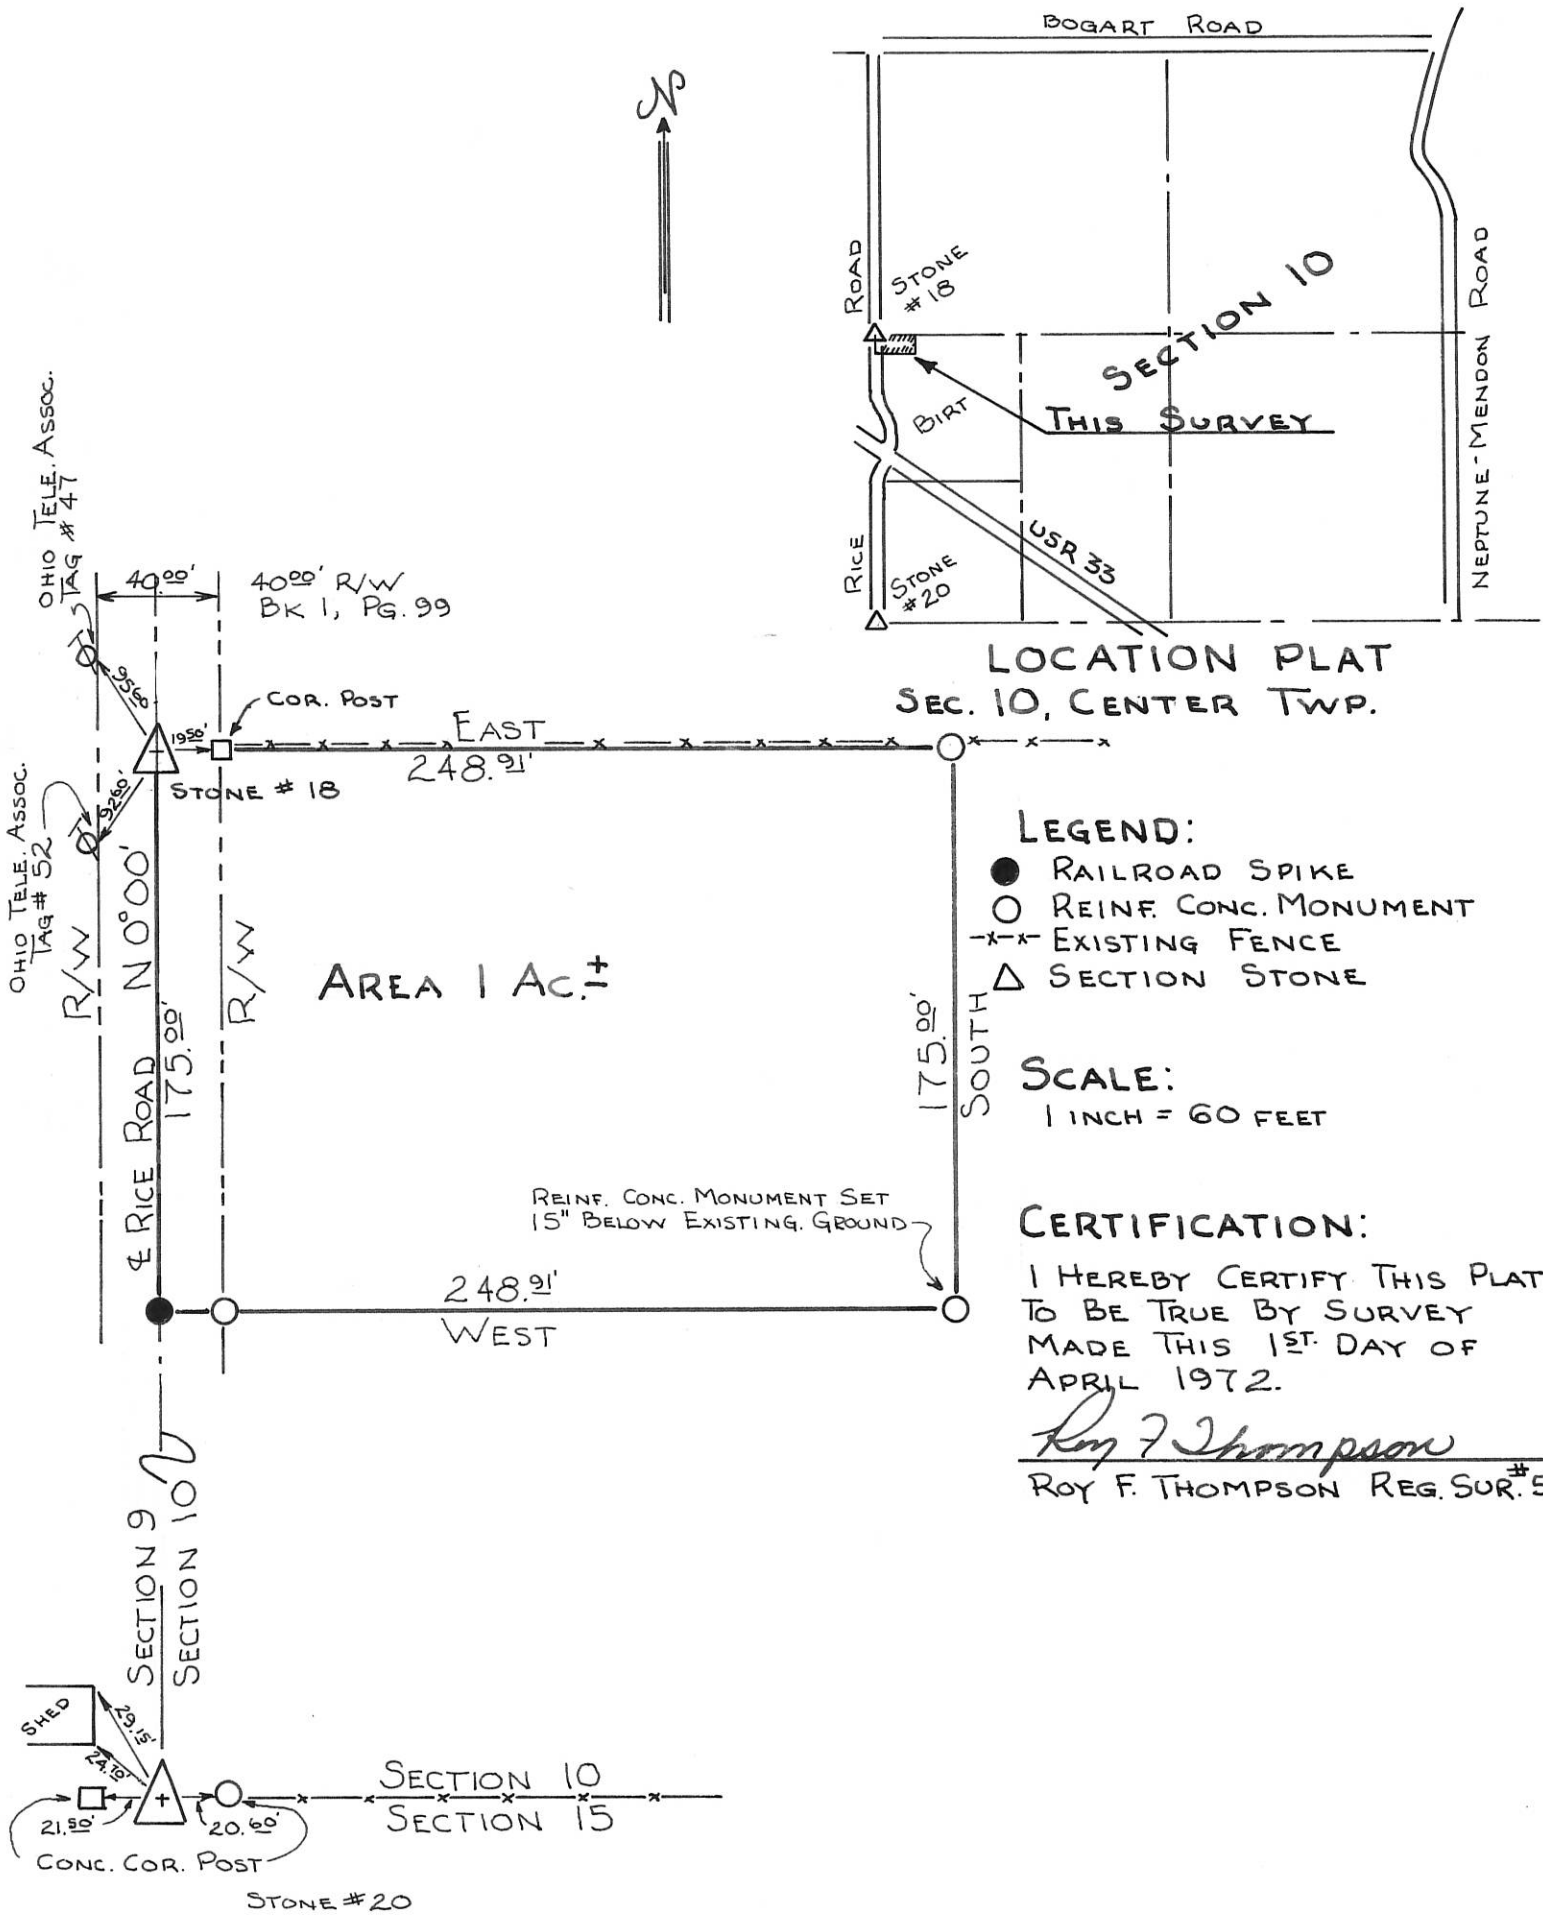 BOGART ROAD
N
ROAD
STONE
#18
SECTION 10
NEPTUNE-MENDON ROAD
BIRT
THIS SURVEY
RICE
STONE
#20
USR 33
LOCATION PLAT
SEC. 10, CENTER TWP.
OHIO TELE. ASSOC.
TAG #47
40.00'
40.00' R/W
BK 1, PG. 99
95.60'
COR. POST
19.50'
EAST
248.91'
STONE # 18
92.60'
OHIO TELE. ASSOC.
TAG # 52
R/W
R/W
℄ RICE ROAD N 0°00'
175.00'
AREA 1 AC.±
175.00'
SOUTH
LEGEND:
RAILROAD SPIKE
REINF. CONC. MONUMENT
-x-x- EXISTING FENCE
SECTION STONE
SCALE:
1 INCH = 60 FEET
REINF. CONC. MONUMENT SET
15" BELOW EXISTING. GROUND
248.91'
WEST
CERTIFICATION:
I HEREBY CERTIFY THIS PLAT
TO BE TRUE BY SURVEY
MADE THIS 1ST. DAY OF
APRIL 1972.
Roy F Thompson
ROY F. THOMPSON REG. SUR. #5
SECTION 9
SECTION 10
SHED
29.15'
24.70'
21.50'
20.60'
SECTION 10
SECTION 15
CONC. COR. POST
STONE #20